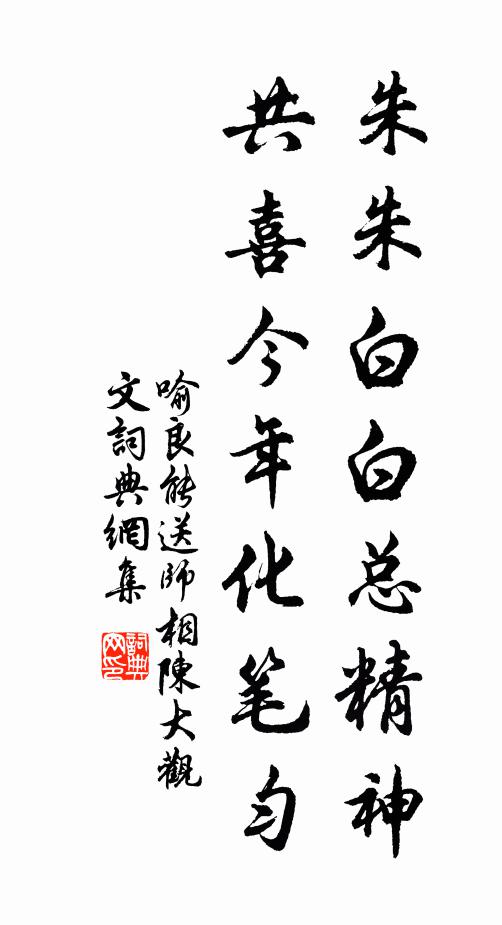 朱朱白白总精神
共喜今年化笔匀
喻良能送師相陳大觀
文詞典網集
詞典
网印